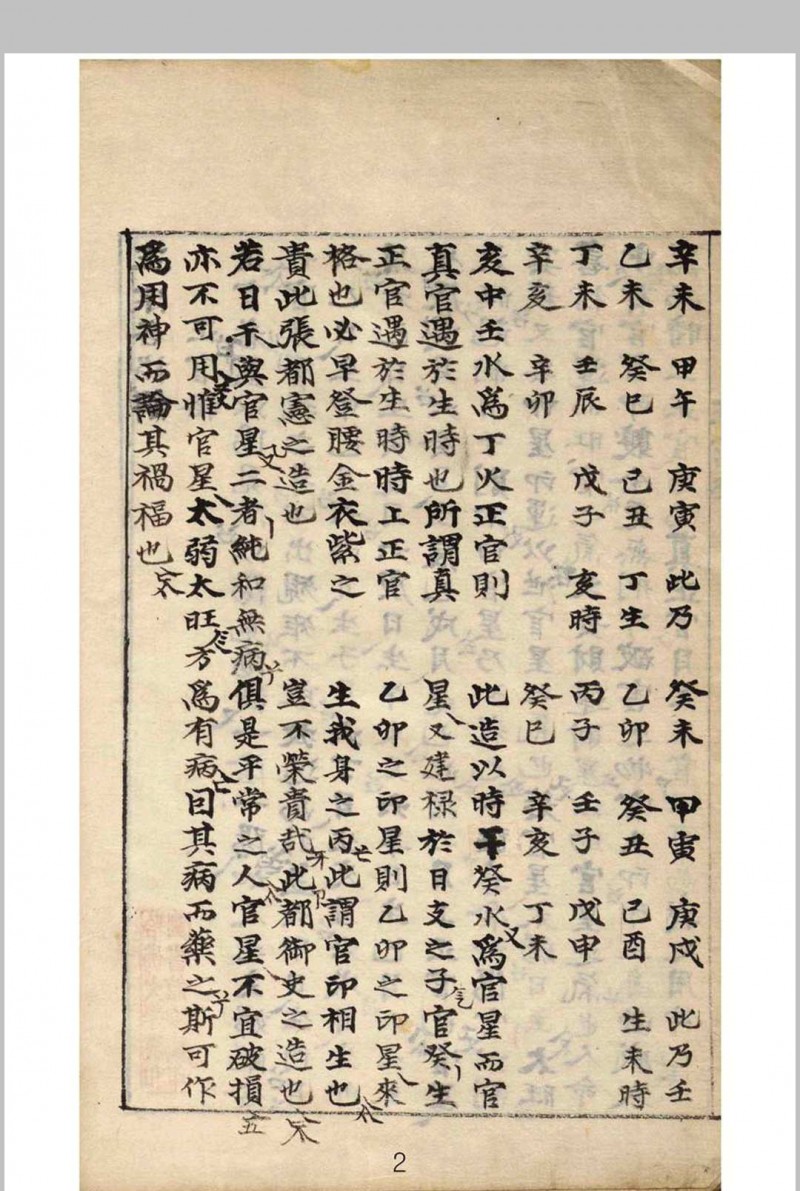 辛未 甲午 庚寅 此乃 癸未 甲寅 庚戌 此乃壬
乙未 癸巳 己丑 丁生 乙卯 癸丑 己酉 生未時
丁未 壬辰 戊子 亥時 丙子 壬子 戊申
辛亥 辛卯 癸巳 辛亥 丁未
亥中壬水爲丁火正官則 此造以時干癸水爲官星而官
真官遇於生時也所謂真 星又建禄於日支之子官癸生
正官遇於生時時上正官 乙卯之印星則乙卯之印星來
格也必早登腰金衣紫之 生我身之丙此謂官印相生也
貴此張都憲之造也 豈不榮貴哉此都御史之造也
若日干與官星二者純和無病俱是平常之人官星不宜破損
亦不可用惟官星太弱太旺方爲有病曰其病而藥之斯可作
爲用神而論其禍福也
2